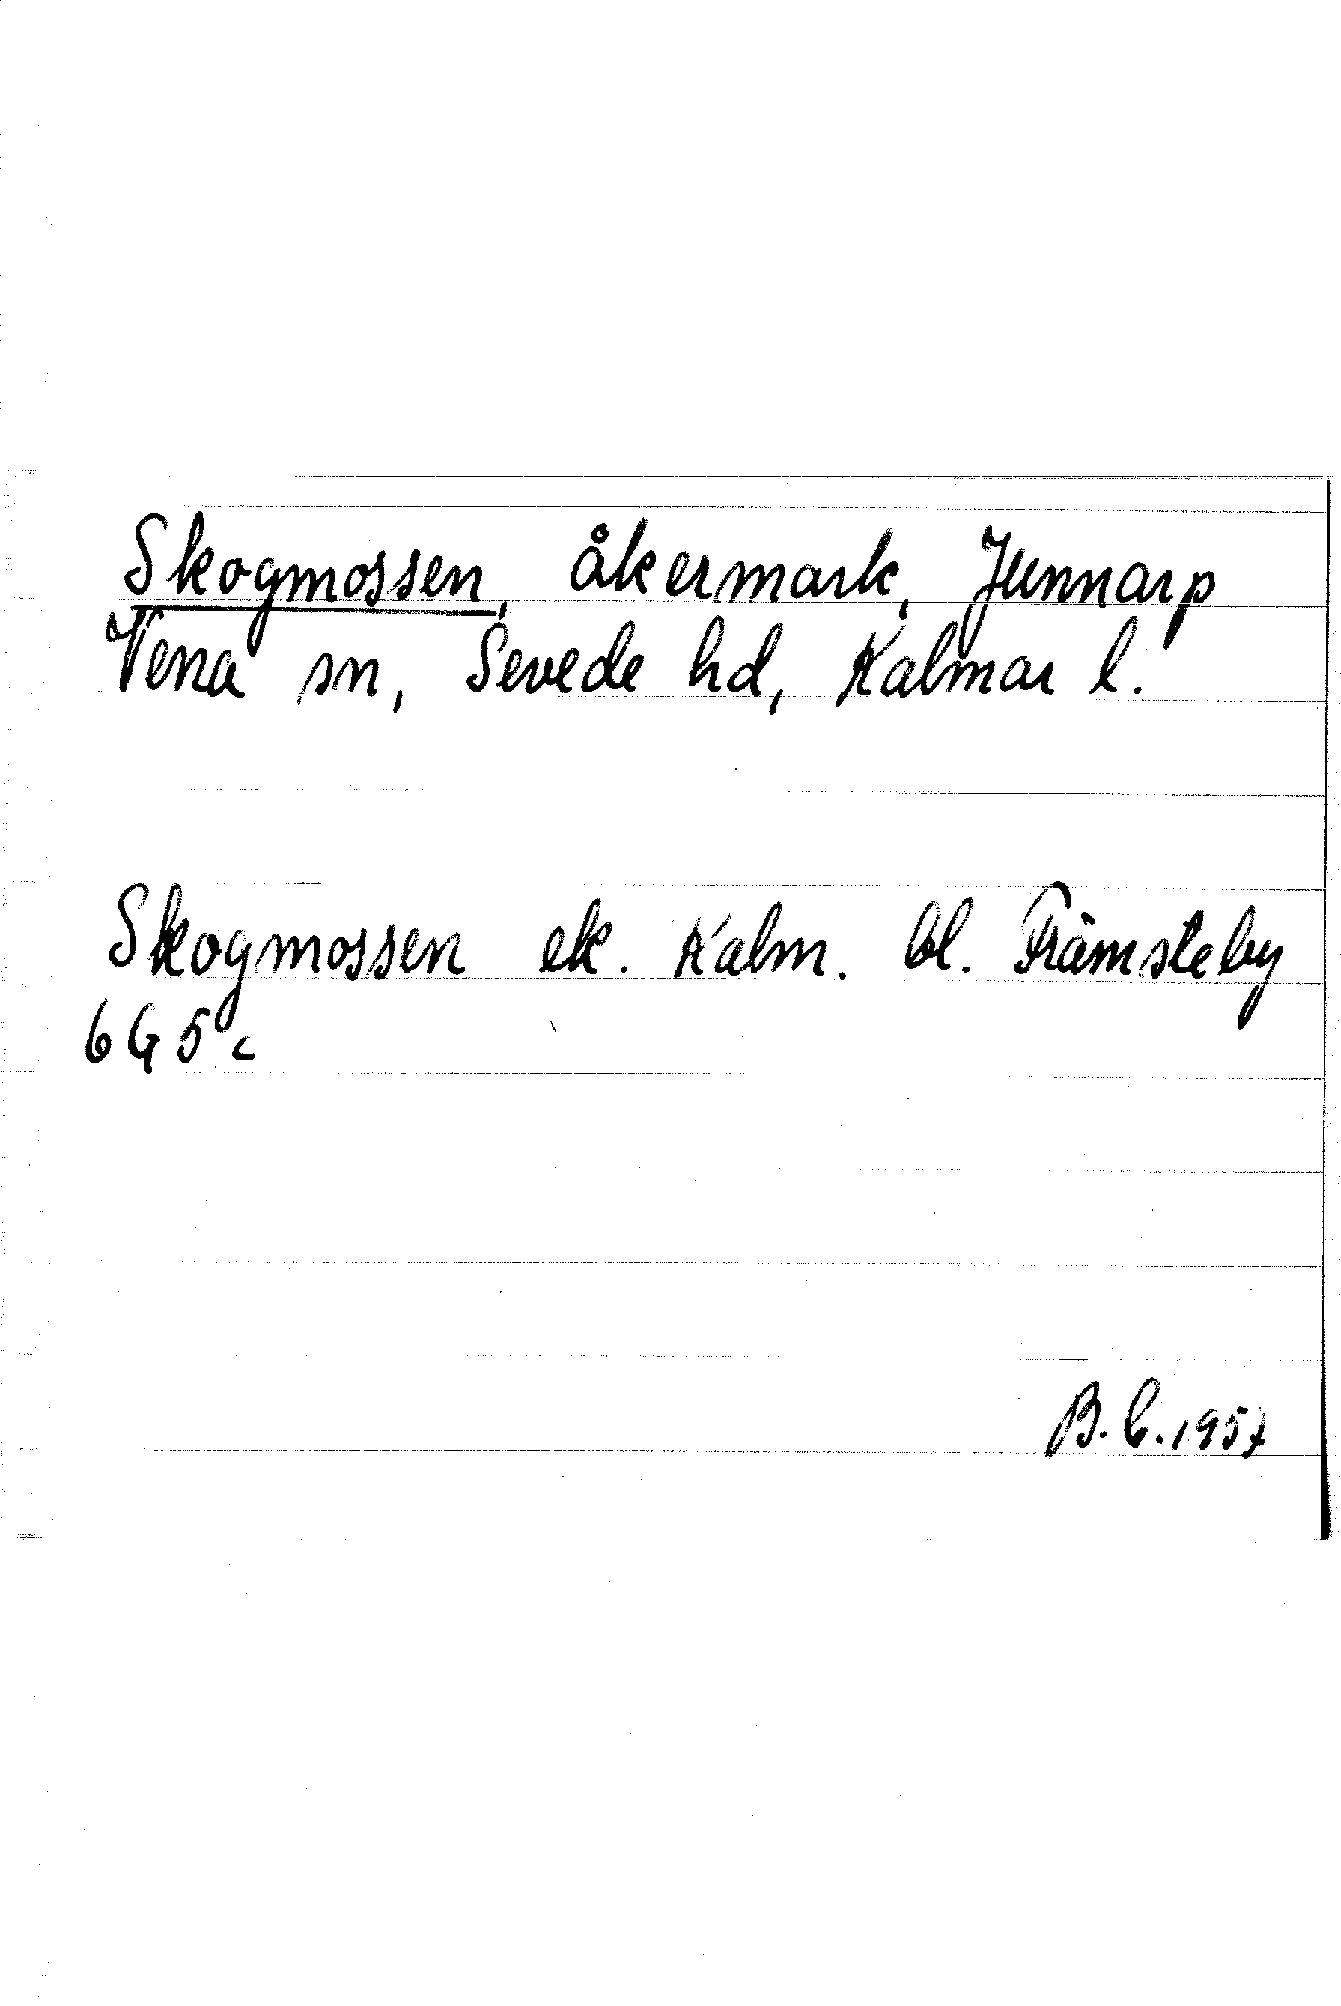 Skogmossen, åkermark, Junnarp
Vena sn, Sevede hd, Kalmar l.
Skogmossen ek. Kalm. bl. Främsteby
6G5c
B. C. 1957